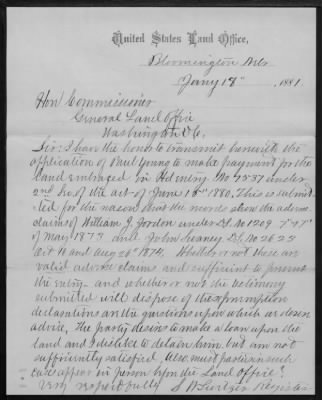 United States Land Office,
Bloomington Neb
Jany 18" 1881.
Hon Commissioner
General Land Office
Washington D.C.
Sir: I have the honor to transmit herewith the
application of Paul Young to make payment for the
land embraced in Hd entry No 7537 under
2nd Sec of the act of June 15th 1880. This is submit-
ted for the reason that the records show the adverse
claims of William J. Jordon under D.S. No 1209
of May 1873 and John Heaney D.S. No 2623
Oct 10 and Aug 26th 1874. Whether or not these are
valid adverse claims and sufficient to prevent
the entry and whether or not the testimony
submitted will dispose of the preemption
declarations are the questions upon which we desire
advice, The party desires to make a loan upon the
land and I dislike to detain him but am not
sufficiently satisfied. Also, must parties in such
case appear in person before the Land Office?
Very respectfully S W Switzer Register